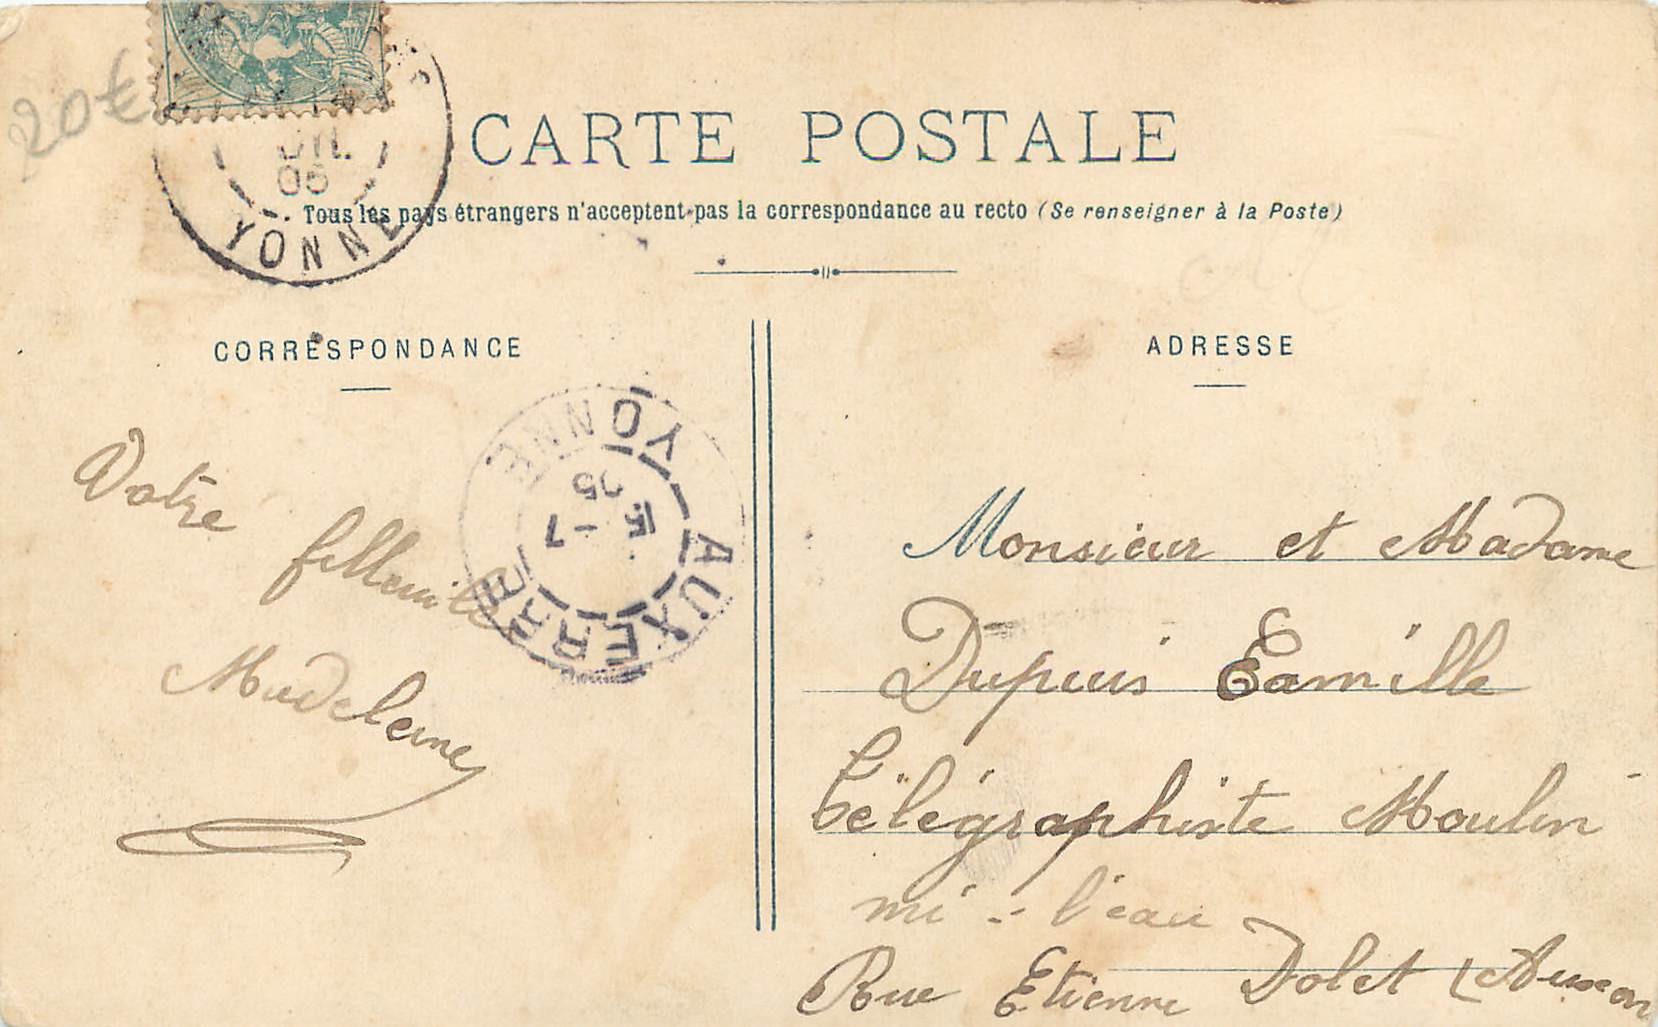 20€
JUIL.
05
YONNE
CARTE POSTALE
Tous les pays étrangers n'acceptent pas la correspondance au recto (Se renseigner à la Poste)
CORRESPONDANCE
ADRESSE
AUXERRE
YONNE
5 - 7
05
Votre filleule
Madeleine
Monsieur et Madame
Dupuis Camille
télégraphiste Moulin
mi-l'eau
Rue Etienne Dolet